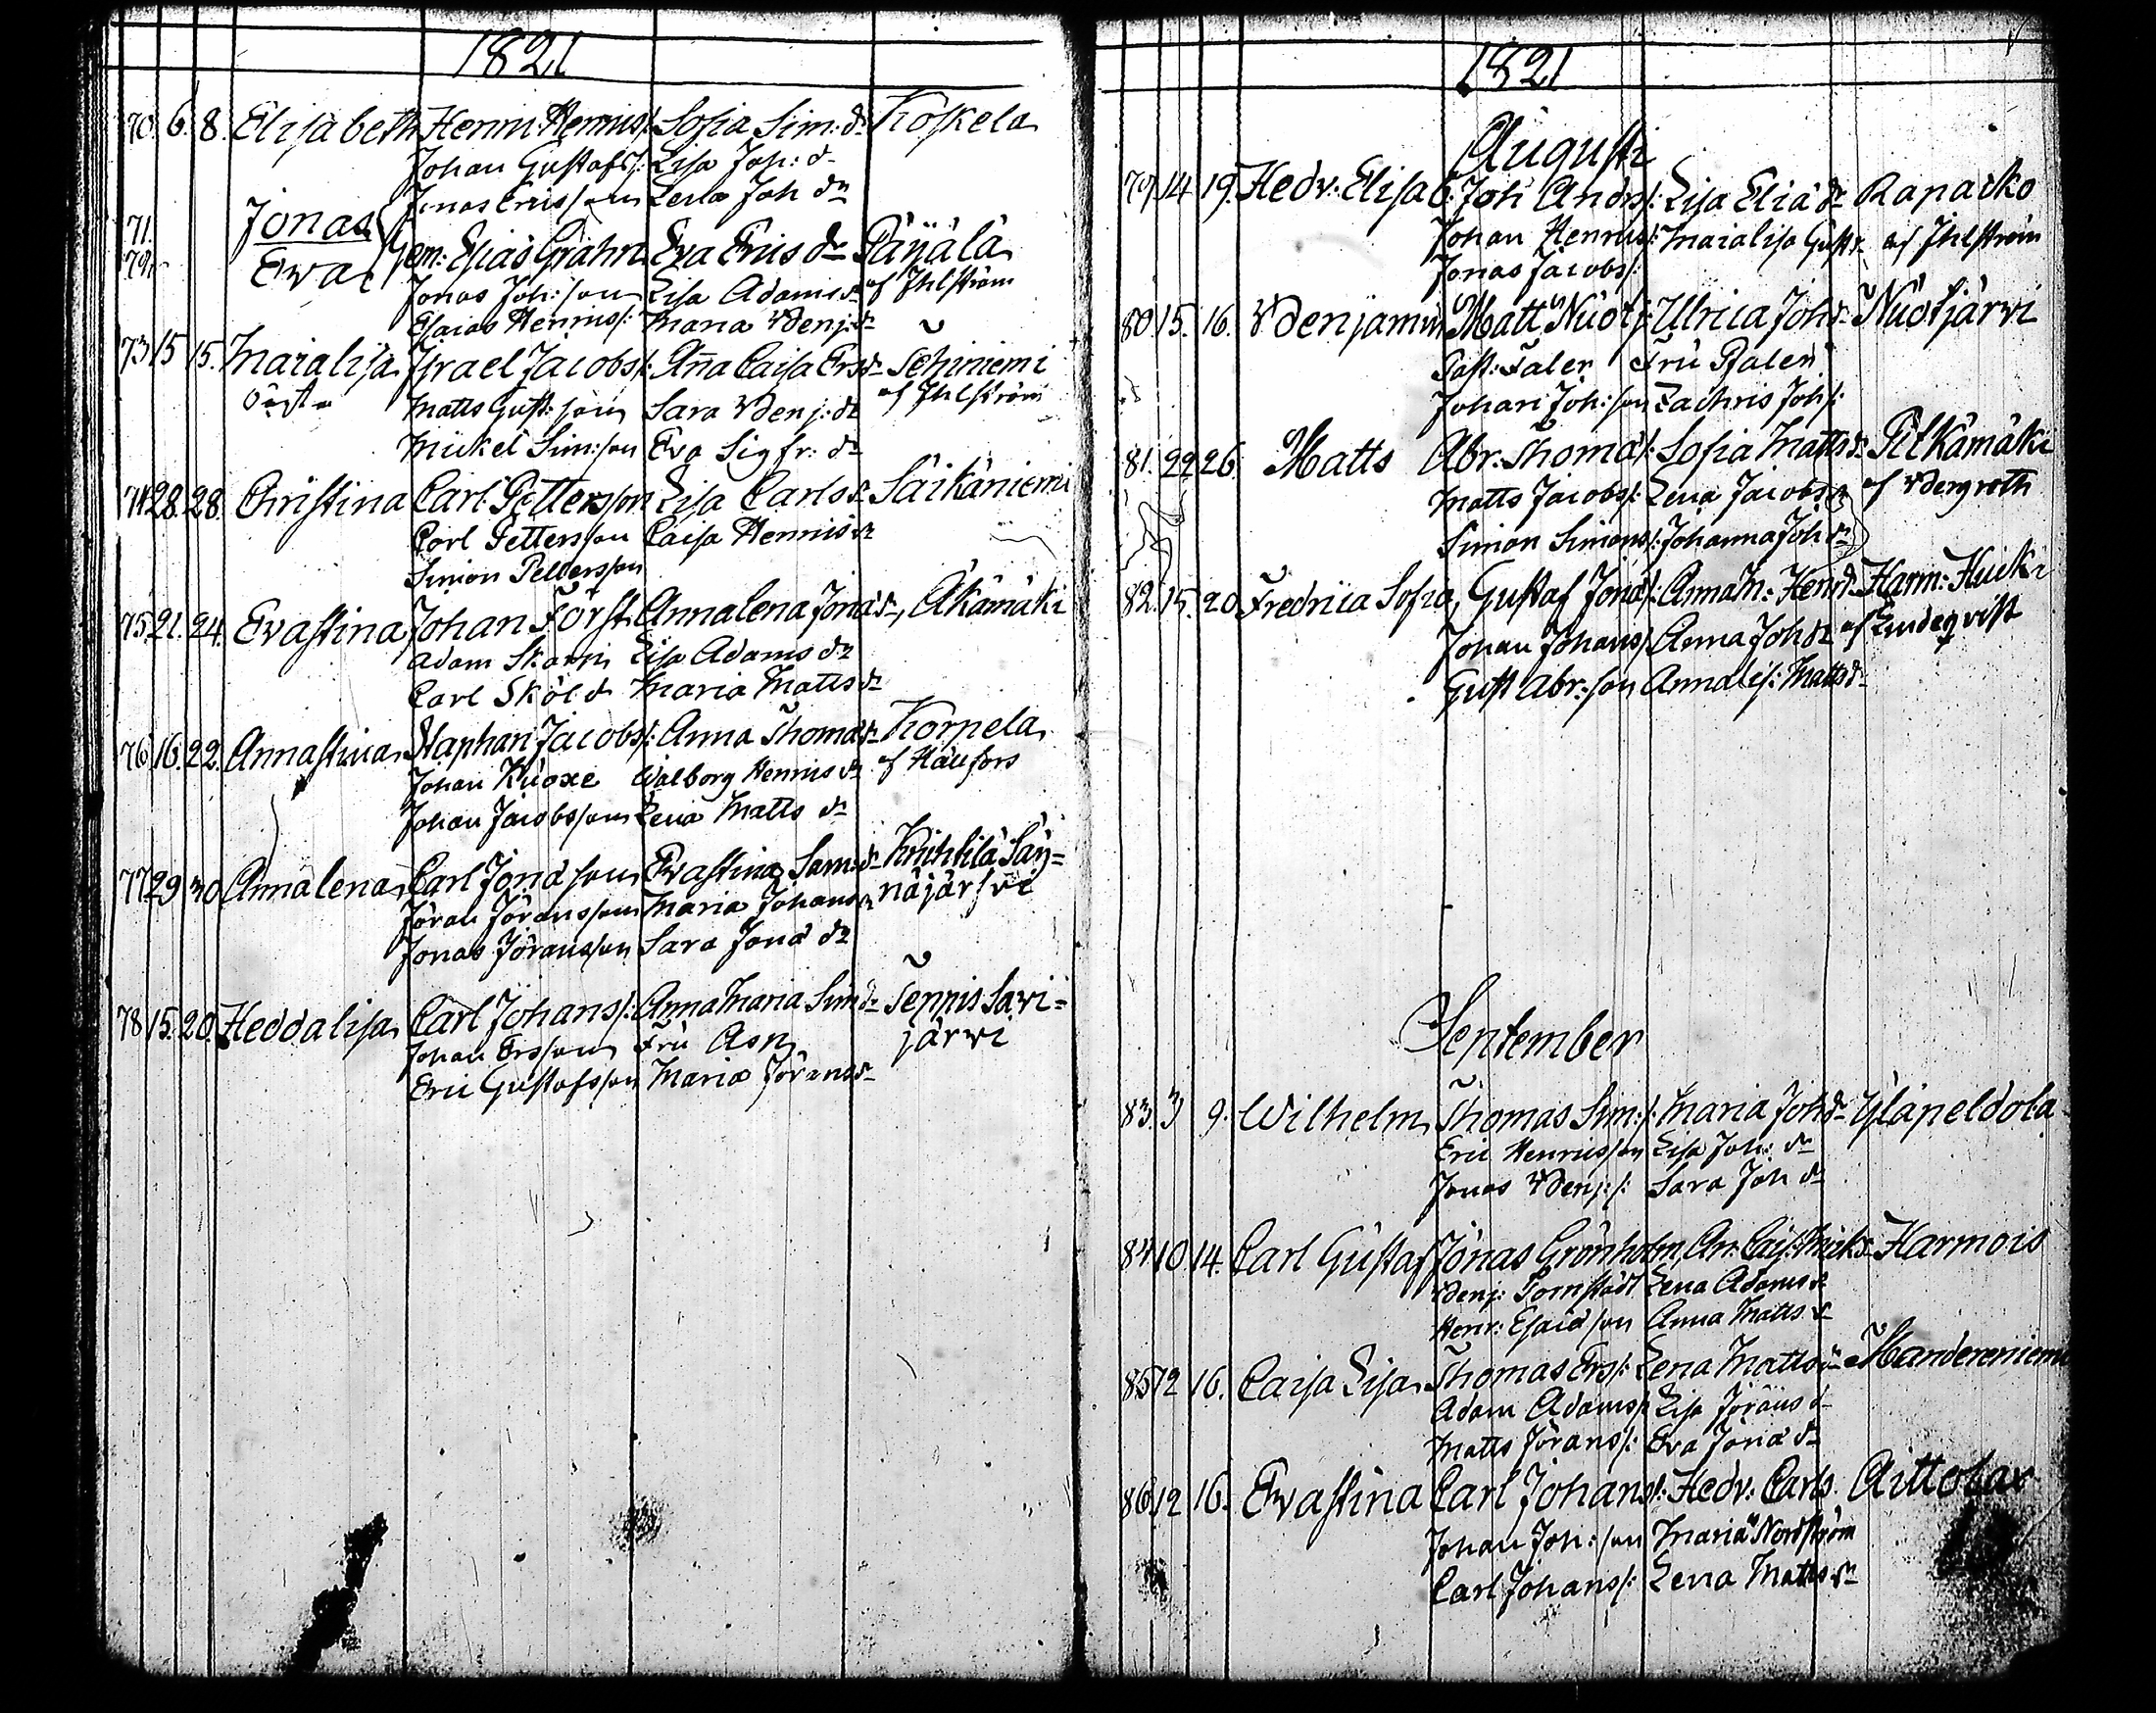 1821
70. 6. 8. Elisabeth Henr: Henrics/: Sofia Sim: dr Koskela
Johan Gustafs/: Lisa Joh: dr
Jonas Ericsson Lena Joh dr
71. Jonas
72. Eva Gem: Elias Grahn Eva Erics dr Päijälä
Jonas Joh:son Lisa Adams dr af Ihlström
Esaias Henrics/: Maria Benj: dr
73 15 15. Maialisa Israel Jacobs/: Anna Caisa Ers dr Tehiniemi
Matts Gust:son Sara Benj: dr af Ihlström
Mickel Sim:son Eva Sigfr: dr
74 28. 28. Christina Carl Petterson Lisa Carls dr Säikäniemi
Carl Petterson Caisa Henrics dr
Simon Petterson
75 21. 24. Evastina Johan Först. Annalena Jona dr, Äkämäki
Adam Skarp Lisa Adams dr
Carl Sköld Maria Matts dr
76 16. 22. Annastina Staphan Jacobs/: Anna Thoma dr Korpela
Johan Kuoxe Walborg Henrics dr
Johan Jacobsson Lena Matts dr
77 29 30 Annalena Carl Jonason Evastina Sam: dr Säy=
Jöran Jöransson Maria Johans dr näjärfvi
Jonas Jöransson Sara Jona dr
78 15. 20. Heddalisa Carl Johans/: Anna Maria Sim dr Tennis Savi=
Johan Ersson Fru Asp järvi
Eric Gustafsson Maria Jörans dr
1821
Augusti
79 14 19. Hedv: Elisab: Joh Anders/: Lisa Elia dr Rapacko
Johan Henrics/: Maialisa Gust dr af Ihlström
Jonas Jacobs/:
80. 15. 16. Benjamin Matt Nuotj: Ulrica Joh dr Nuotjärvi
Past: Faler Fru Pfaler
Johan Joh:son Zachris Joh/:
81. 22 26. Matts Abr: Thoma/: Sofia Matts dr Pitkämäki
Matts Jacobs/: Lena Jacobs dr af Bergroth
Simon Simons/: Johanna Joh dr
82. 15. 20 Fredrica Sofia, Gustaf Jona/: Anna M: Henr dr Harm: Hucki
Johan Johans/: Anna Joh dr af Lindeqvist
Gust Abr:son Annalis: Matts dr
September
83. 3 9. Wilhelm Thomas Sim:/: Maria Joh dr Yläpeldola
Eric Henricsson Lisa Joh: dr
Jonas Benj:/: Sara Joh dr
84 10 14. Carl Gustaf Jonas Grönholm, An: Cais: Mick dr Harmois
Benj: Lena Adams dr
Henr: Esaiason Anna Matts dr
85 12 16. Caisa Lisa Thomas Ers/: Lena Matts dr Mandereniemi
Adam Adams/: Lisa Jörans dr
Matts Jörans/: Eva Jona dr
86 12 16. Evastina Carl Johans/: Hedv: Carls.
Johan Joh:son Maria Nordström
Carl Johans/: Lena Matts dr